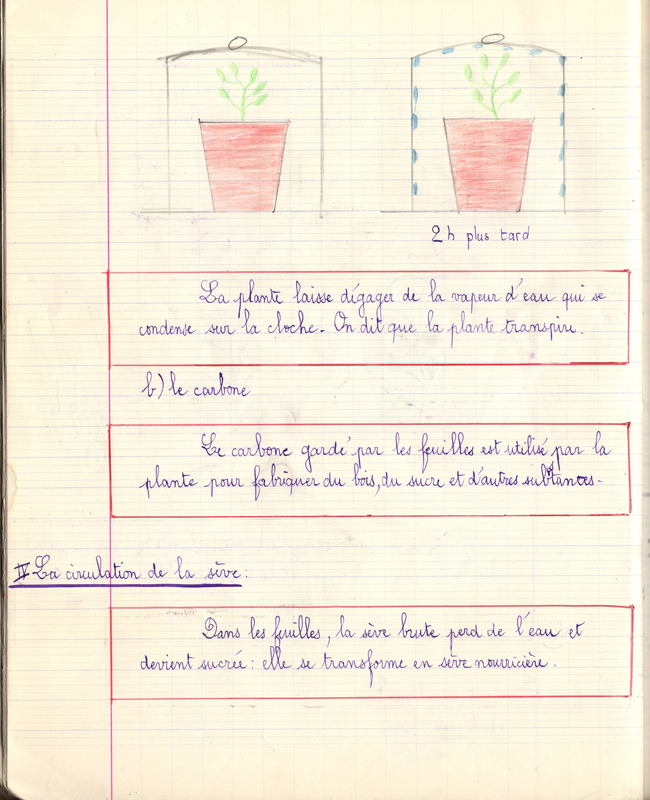 2 h plus tard
La plante laisse dégager de la vapeur d'eau qui se
condense sur la cloche. On dit que la plante transpire.
b) le carbone
Le carbone gardé par les feuilles est utilisé par la
plante pour fabriquer du bois, du sucre et d'autres substances.
IV La circulation de la sève :
Dans les feuilles, la sève brute perd de l'eau et
devient sucrée : elle se transforme en sève nourricière.